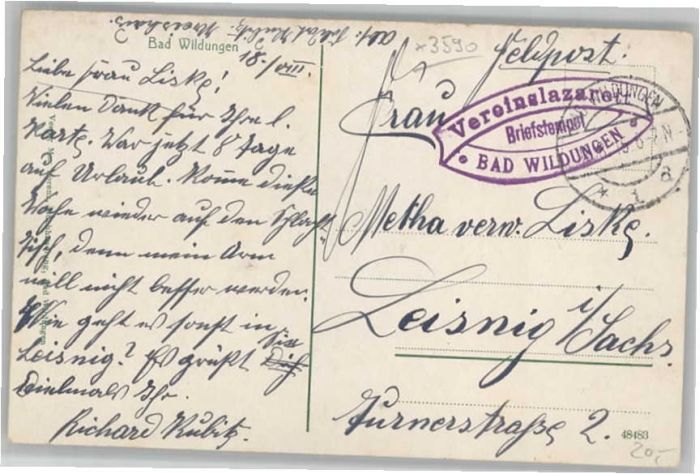 Abs: Richard Kubitz. Kreishaus.
Bad Wildungen
18./VIII.
Liebe Frau Liske!
Vielen Dank für Ihre l.
Karte. War jetzt 8 Tage
auf Urlaub. Komme diese
Woche wieder auf den Schlacht-
tisch, denn mein Arm
will nicht besser werden.
Wie geht es sonst in
Leisnig? Es grüßt Sie
vielmals Ihr
Richard Kubitz.
*3590
Feldpost.
Frau
Vereinslazarett
Briefstempel
BAD WILDUNGEN
WILDUNGEN
Metha verw. Liske.
Leisnig i/Sachs.
Turnerstraße 2.
48483
20,-